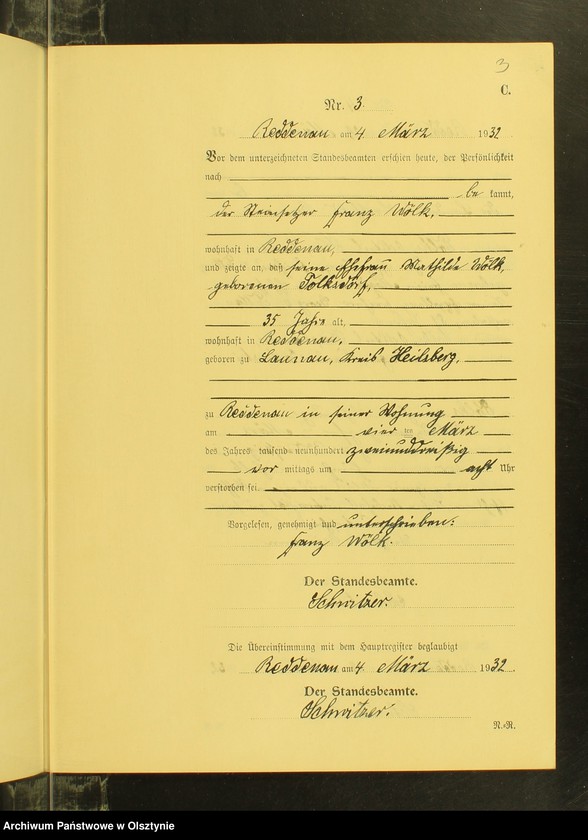 3
C.
Nr. 3.
Reddenau am 4 März 1932
Vor dem unterzeichneten Standesbeamten erschien heute, der Persönlichkeit
nach
be kannt,
der Steinsetzer Franz Wölk,
wohnhaft in Reddenau,
und zeigte an, daß seine Ehefrau Mathilde Wölk,
geborenen Tolksdorf,
35 Jahre alt,
wohnhaft in Reddenau,
geboren zu Launau, Kreis Heilsberg,
zu Reddenau in seiner Wohnung
am vier ten März
des Jahres tausend neunhundert zweiunddreißig
vor mittags um acht Uhr
verstorben sei.
Vorgelesen, genehmigt und unterschrieben:
Franz Wölk.
Der Standesbeamte.
Schwitzer.
Die Übereinstimmung mit dem Hauptregister beglaubigt
Reddenau am 4 März 1932.
Der Standesbeamte.
Schwitzer.
N.-R.
Archiwum Państwowe w Olsztynie